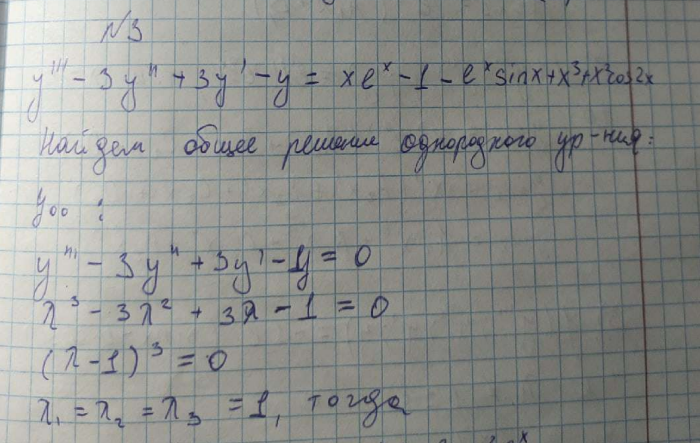 N3
y''' - 3y'' + 3y' - y = xe^x - 1 - e^x sinx + x^3 + x^2 cos2x
Найдем общее решение однородного ур-ния:
y₀₀ :
y''' - 3y'' + 3y' - y = 0
λ^3 - 3λ^2 + 3λ - 1 = 0
(λ-1)^3 = 0
λ₁ = λ₂ = λ₃ = 1, тогда